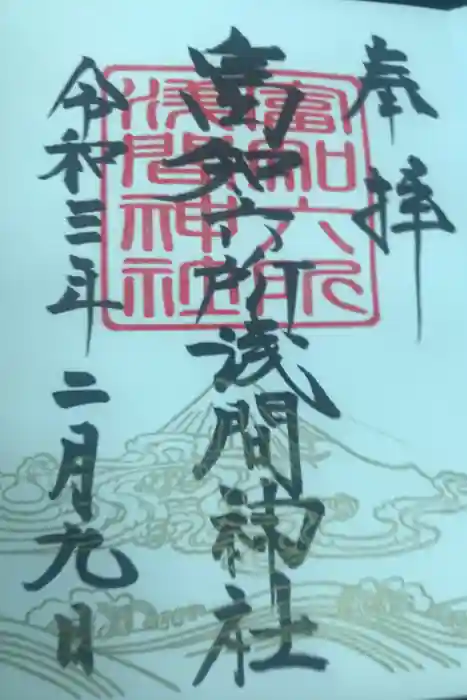 奉拝
富知六所浅間神社
令和三年二月九日
富知六所
浅間神社